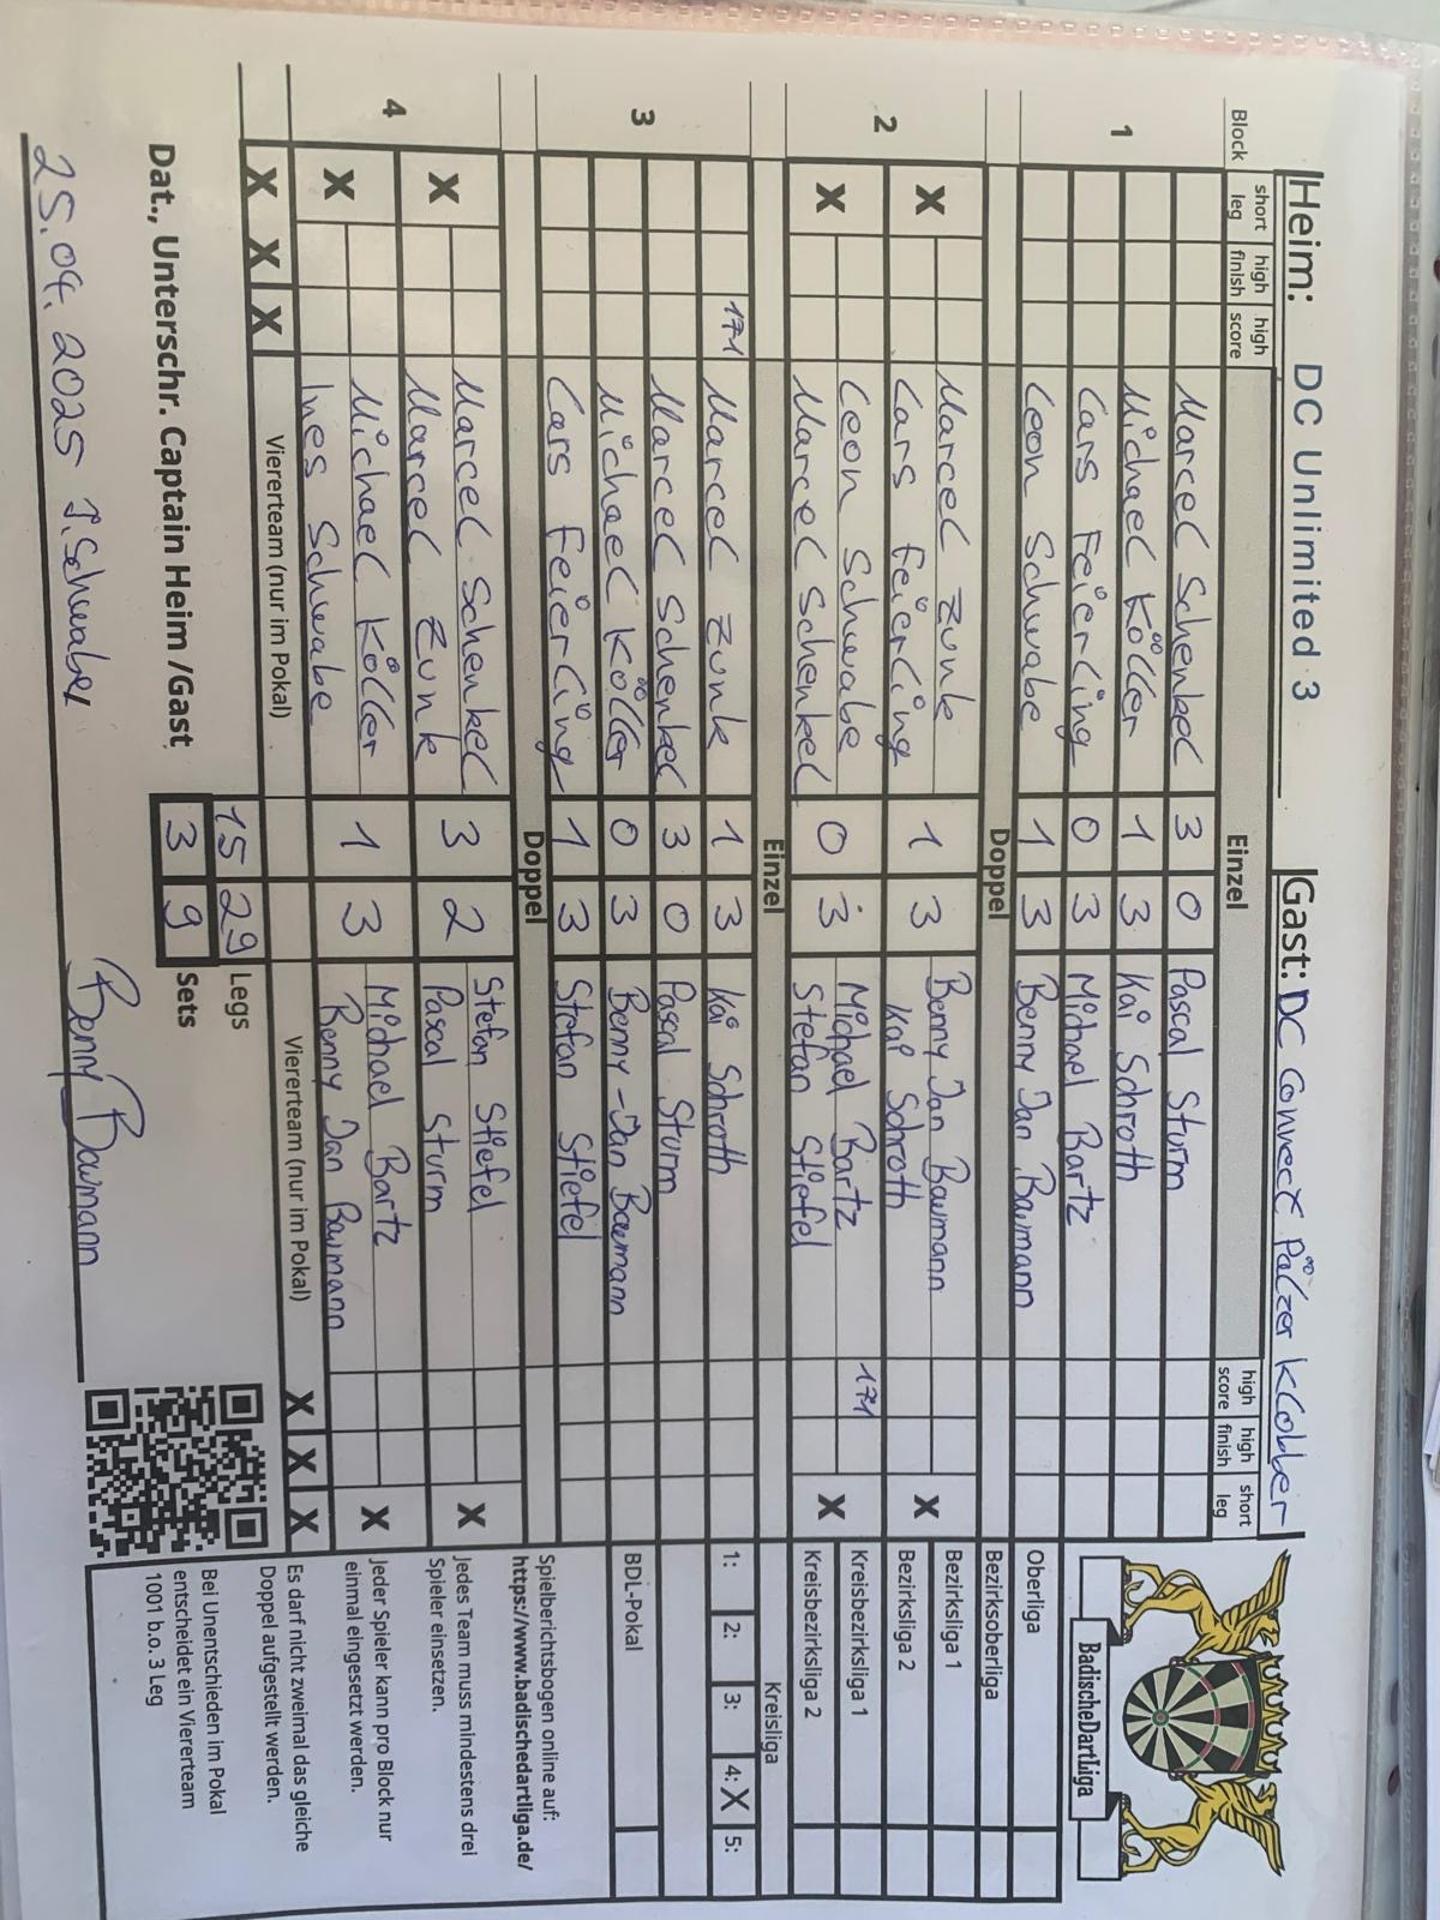 Heim: DC Unlimited 3 Gast: DC Connect Pälzer Klobber
Block short leg high finish high score Einzel high score high finish short leg
1 Marcel Schenkel 3 0 Pascal Sturm
Michael Köller 1 3 Kai Schroth
Lars Feierling 0 3 Michael Bartz
Leon Schwabe 1 3 Benny Jan Baumann
Doppel
2 X Marcel Zunk 1 3 Benny Jan Baumann X
Lars Feierling Kai Schroth
X Leon Schwabe 0 3 Michael Bartz 171 X
Marcel Schenkel Stefan Stiefel
Einzel
3 171 Marcel Zunk 1 3 Kai Schroth
Marcel Schenkel 3 0 Pascal Sturm
Michael Köller 0 3 Benny-Jan Baumann
Lars Feierling 1 3 Stefan Stiefel
Doppel
4 X Marcel Schenkel 3 2 Stefan Stiefel X
Marcel Zunk Pascal Sturm
X Michael Köller 1 3 Michael Bartz X
Ines Schwabe Benny Jan Baumann
X X X Viererteam (nur im Pokal) Viererteam (nur im Pokal) X X X
15 29 Legs
Dat., Unterschr. Captain Heim /Gast 3 9 Sets
25.04.2025 Benny Baumann
BadischeDartLiga
Oberliga
Bezirksoberliga
Bezirksliga 1
Bezirksliga 2
Kreisbezirksliga 1
Kreisbezirksliga 2
Kreisliga
1: 2: 3: 4: X 5:
BDL-Pokal
Spielberichtsbogen online auf:
https://www.badischedartliga.de/
Jedes Team muss mindestens drei
Spieler einsetzen.
Jeder Spieler kann pro Block nur
einmal eingesetzt werden.
Es darf nicht zweimal das gleiche
Doppel aufgestellt werden.
Bei Unentschieden im Pokal
entscheidet ein Viererteam
1001 b.o. 3 Leg